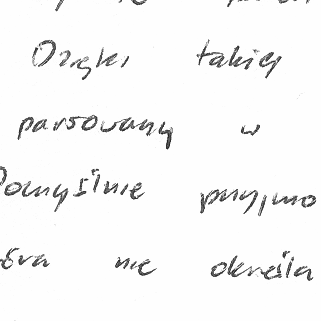 Dzięki takiej
parsowany w
Pomyślnie przyjmo
óra nie określa